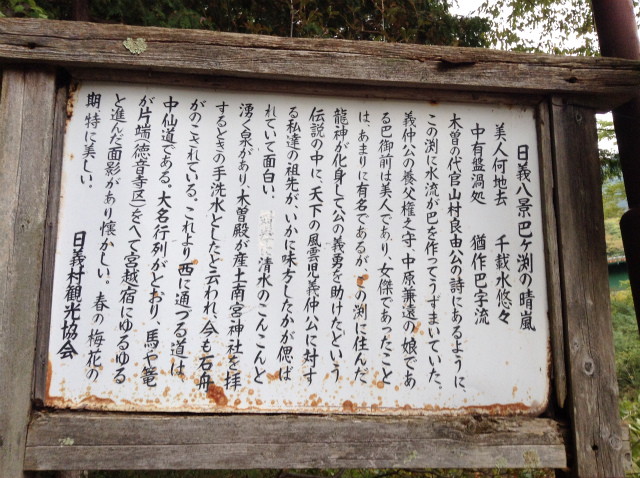 日義八景巴ヶ渕の晴嵐
美人何地去　千載水悠々
中有盤渦処　猶作巴字流
木曽の代官山村良由公の詩にあるように、
この渕に水流が巴を作ってうずまいていた。
義仲公の養父権之守、中原兼遠の娘であ
る巴御前は美人であり、女傑であったこと
は、あまりに有名であるが、この渕に住んだ
龍神が化身して公の義勇を助けた、という
伝説の中に、天下の風雲児義仲公に対す
る私達の祖先が、いかに味方したかが偲ば
れていて面白い。清水のこんこんと
湧く泉があり、木曽殿が産土南宮神社を拝
するときの手洗水としたと云われ、今も石舟
がのこされている。これより西に通づる道は
中仙道である。大名行列がとおり、馬や篭
が片端（徳音寺区）をへて宮越宿にゆるゆる
と進んだ面影があり懐かしい。春の梅花の
期、特に美しい。
日義村観光協会